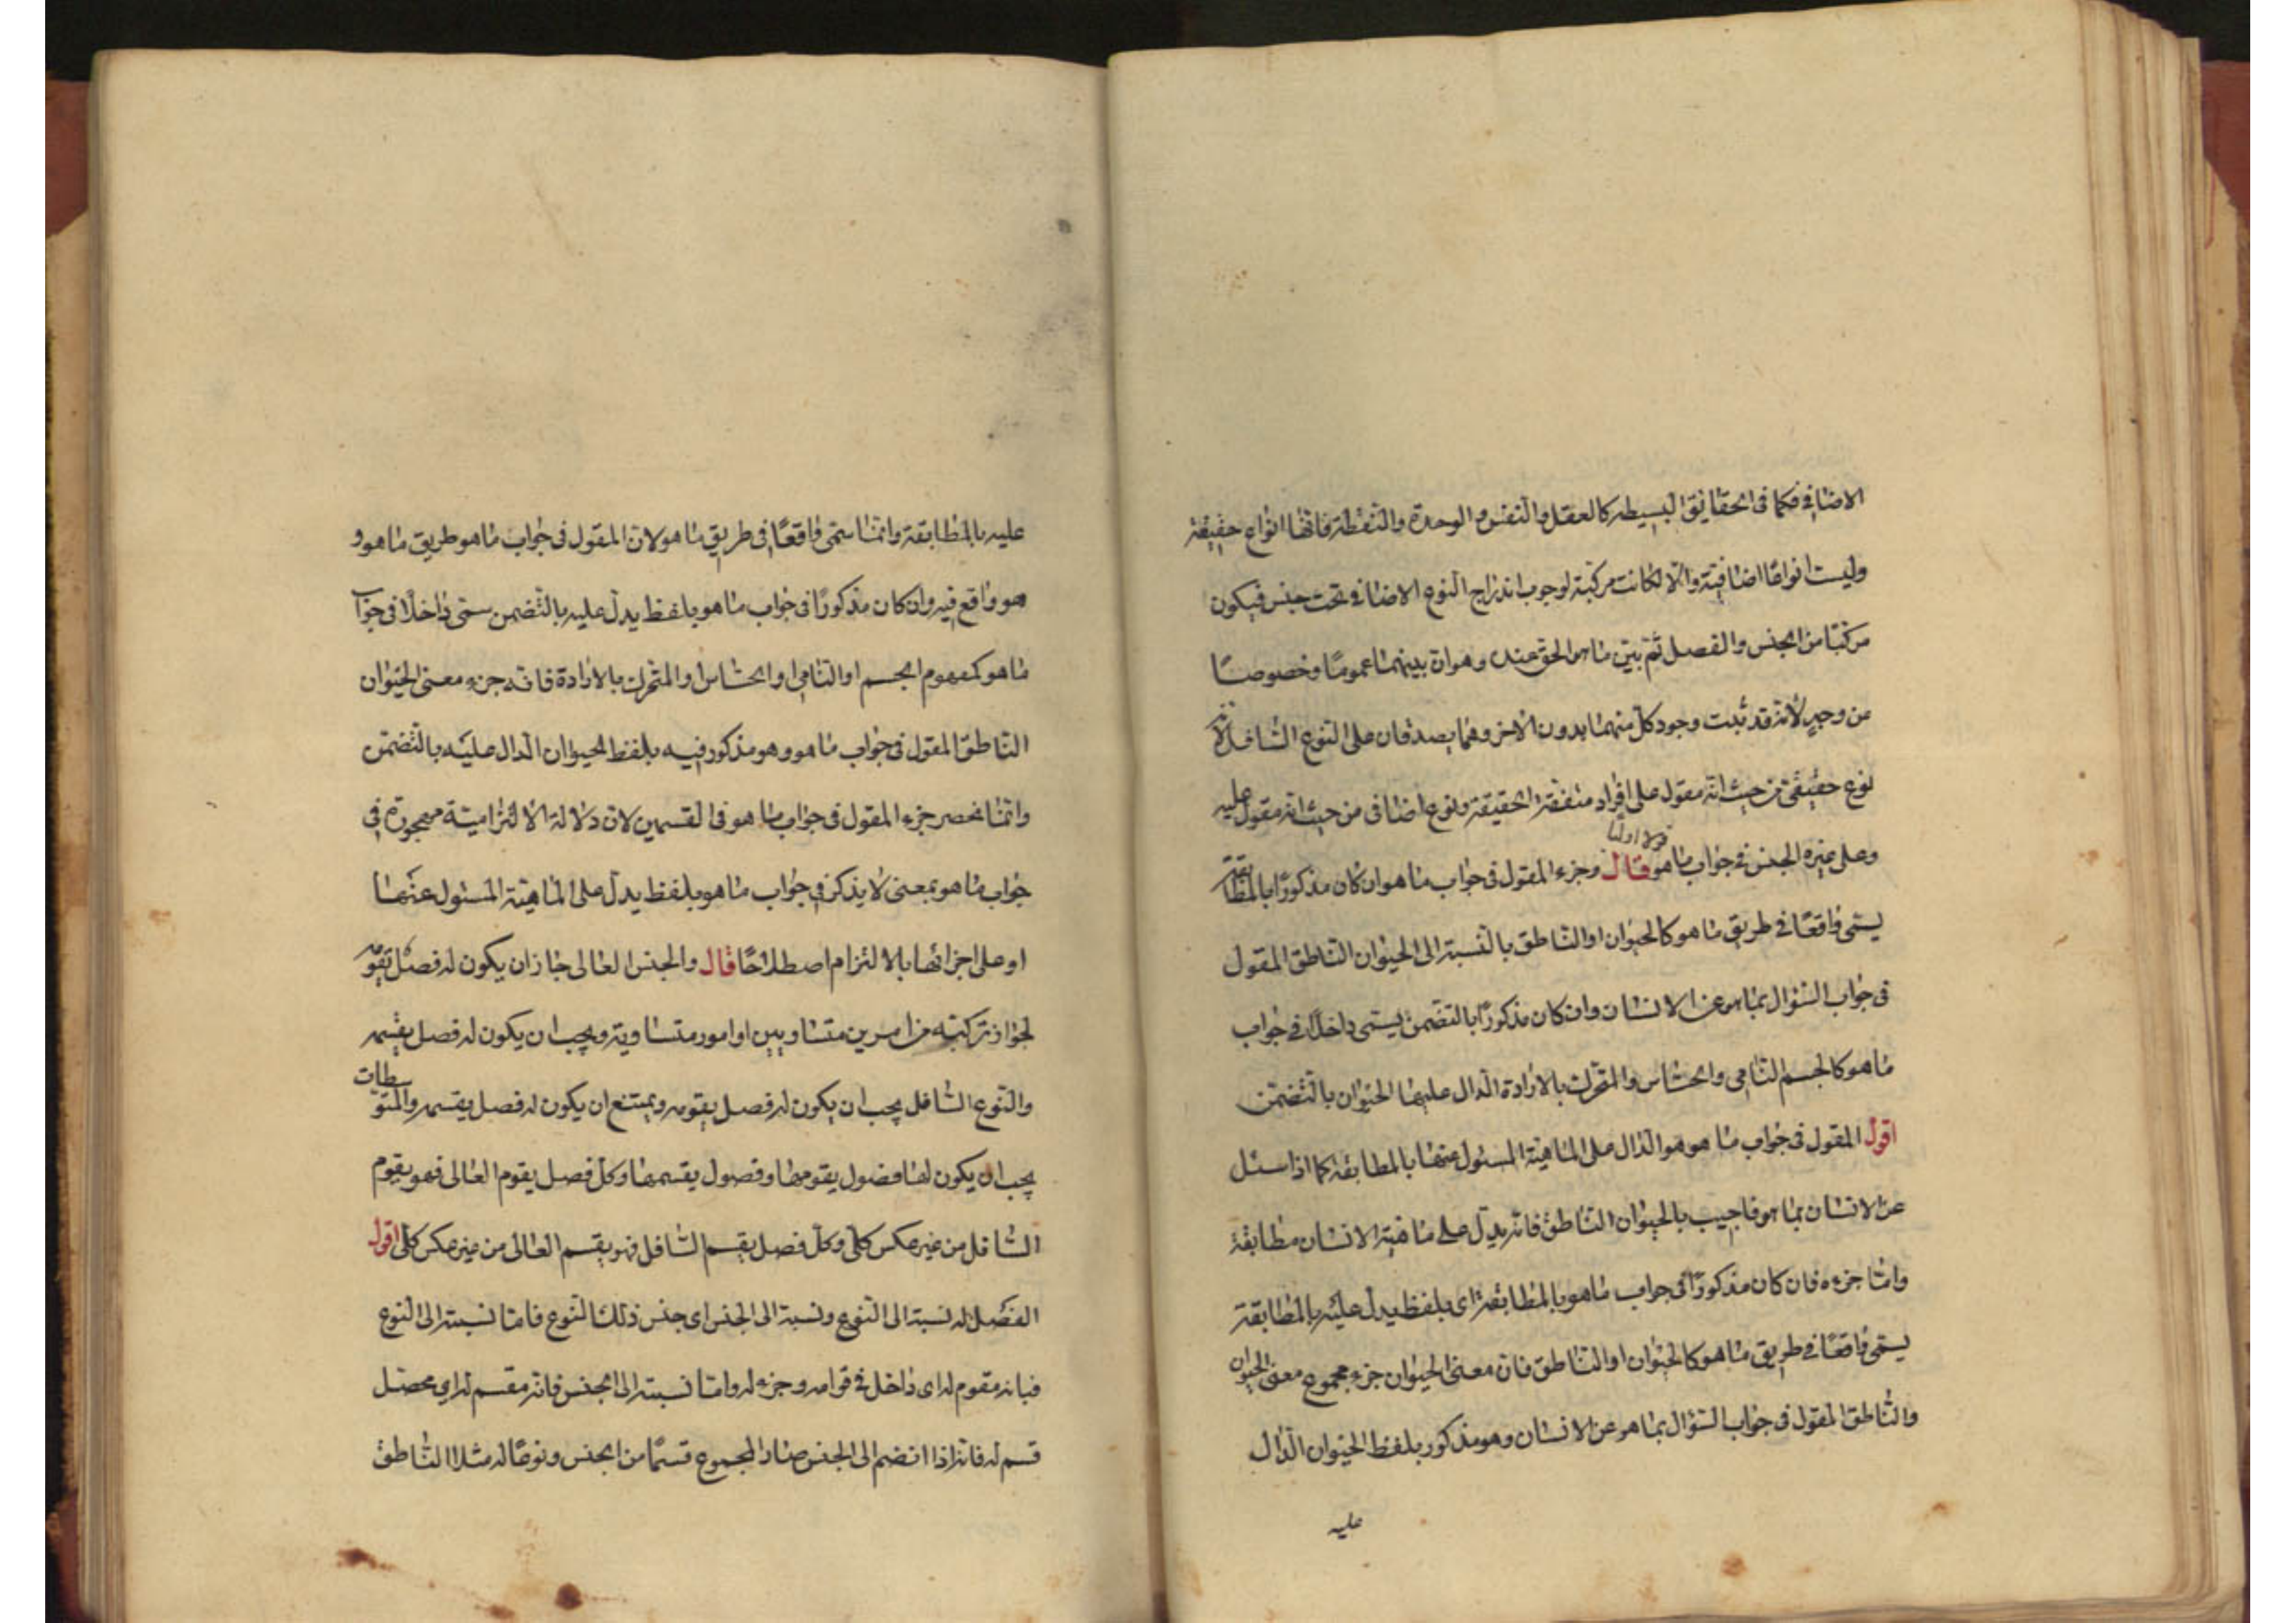 الاضافى فكما فى الحقايق البسيطه كالعقل والنفس والوحدة والنقطة فانها انواع حقيقة
وليست انواعًا اضافية والّا لكانت مركبة لوجوب اندراج النوع الاضافى تحت جنس فيكون
مركبًا من الجنس والفصل ثم بيّن ما هو الحق عنده وهو ان بينهما عمومًا وخصوصًا
من وجهٍ لأنه قد ثبت وجود كل منهما بدون الاخر وهما يصدقان على النوع السافل لانه
نوع حقيقى من حيث انه مقول على افراد متفقة الحقيقة ونوع اضافى من حيث انه مقول عليه
وعلى غيره الجنس فى جواب ما هو قولا اوليا قال وجزء المقول فى جواب ما هو ان كان مذكورًا بالمطابقة
يسمى واقعًا فى طريق ما هو كالحيوان او الناطق بالنسبة الى الحيوان الناطق المقول
فى جواب السؤال بما هو عن الانسان وان كان مذكورًا بالتضمن يسمى داخلًا فى جواب
ما هو كالجسم النامى والحساس والمتحرك بالارادة الدال عليها الحيوان بالتضمّن
اقول المقول فى جواب ما هو هو الدال على الماهية المسئول عنها بالمطابقة كما اذا سئل
عن الانسان بما هو فاجيب بالحيوان الناطق فانه يدل على ماهية الانسان مطابقة
وامّا جزءه فان كان مذكورًا فى جواب ما هو بالمطابقة اى بلفظ يدل عليه بالمطابقة
يسمى واقعًا فى طريق ما هو كالحيوان او الناطق فان معنى الحيوان جزء مجموع معنى الحيوان
والناطق المقول فى جواب السؤال بما هو عن الانسان وهو مذكور بلفظ الحيوان الدال
عليه
عليه بالمطابقة وانما سمى واقعًا فى طريق ما هو لان المقول فى جواب ما هو طريق ما هو و
هو واقع فيه وان كان مذكورًا فى جواب ما هو بلفظ يدل عليه بالتضمن سمى داخلًا فى جواب
ما هو كمفهوم الجسم او النامى او الحساس او المتحرك بالارادة فانه جزء معنى الحيوان
الناطق المقول فى جواب ما هو وهو مذكور فيه بلفظ الحيوان الدال عليه بالتضمن
وانما انحصر جزء المقول فى جواب ما هو فى القسمين لان دلالة الالتزامية مهجورة فى
جواب ما هو بمعنى لا يذكر فى جواب ما هو بلفظ يدل على الماهية المسئول عنها
او على اجزائها بالالتزام اصطلاحًا قال والجنس العالى جاز ان يكون له فصل يقومه
لجواز تركبه من امرين متساويين او امور متساوية ويجب ان يكون له فصل يقسمه
والنوع السافل يجب ان يكون له فصل يقومه ويمتنع ان يكون له فصل يقسمه والمتوسطات
يجب ان يكون لها فصول يقومها وفصول يقسمها وكل فصل يقوم العالى فهو يقوم
السافل من غير عكس كلى وكل فصل يقسم السافل فهو يقسم العالى من غير عكس كلى اقول
الفصل له نسبة الى النوع ونسبة الى الجنس اى جنس ذلك النوع فاما نسبته الى النوع
فبانه مقوم له اى داخل فى قوامه وجزء له واما نسبته الى الجنس فانه مقسم له اى محصل
قسم له فانه اذا انضم الى الجنس صار المجموع قسمًا من الجنس ونوعًا له مثلا الناطق